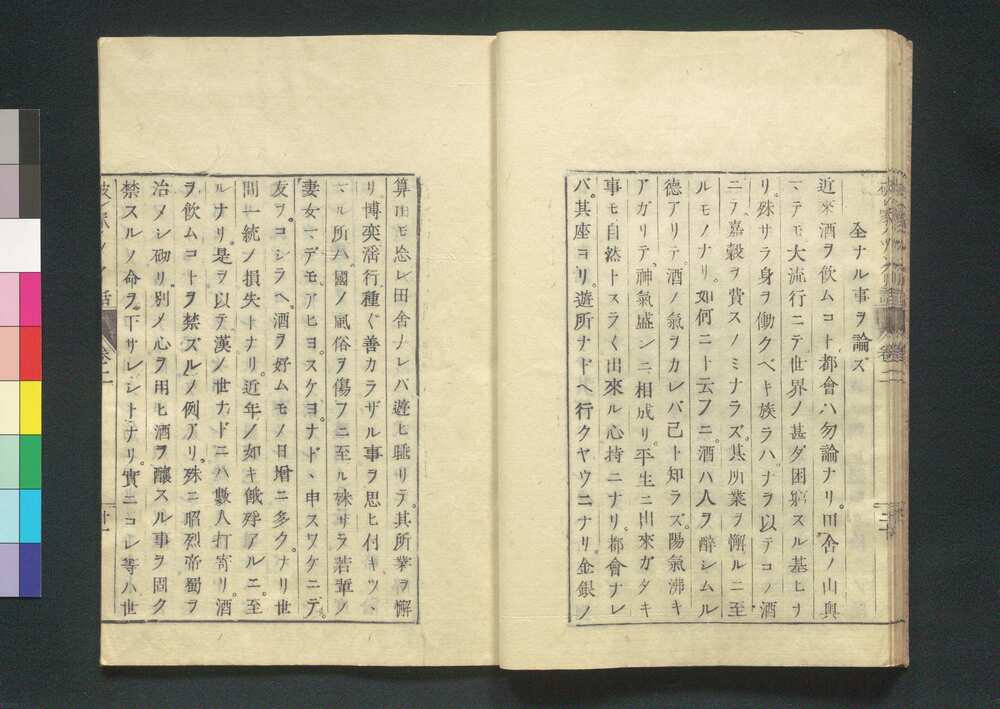 全ナル事ヲ論ズ
近來酒ヲ飲ムコト都會ハ勿論ナリ。田舍ノ山奧
マテモ大流行ニテ世界ノ甚ダ困窮スル基ヒナ
リ。殊サラ身ヲ働クベキ族ラハ。ナヲ以テコノ酒
ニテ。嘉穀ヲ費スノミナラズ。其所業ヲ懈ルニ至
ルモノナリ。如何ニト云フニ。酒ハ人ヲ醉シムル
德アリテ。酒ノ氣ヲカレバ己ト知ラズ。陽氣沸キ
アガリテ。神氣盛シニ相成リ。平生ニ出來ガタキ
事モ自然トスラく出來ル心持ニナリ。都會ナレ
バ。其座ヨリ。遊所ナドヘ行クヤウニナリ。金銀ノ
算用モ忘レ田舍ナレバ遊ヒ耽リテ。其所業ヲ懈
リ博奕滛行種ぐ善カラザル事ヲ思ヒ付キツヽ
マル所ハ。國ノ風俗ヲ傷フニ至ル殊サラ若輩ノ
妻女マデモ。アヒヨスケヨ。ナドヽ申スワケニテ。
友ヲ。コシラヘ。酒ヲ好ムモノ日增ニ多クナリ世
間一統ノ損失トナリ。近年ノ如キ餓殍アルニ。至
ルナリ。是ヲ以テ漢ノ世ナドニハ數人打寄リ。酒
ヲ飲ムコトヲ禁ズルノ例アリ。殊ニ昭烈帝蜀ヲ
治メシ砌リ。別メ心ヲ用ヒ酒ヲ釀スル事ヲ固ク
禁スルノ命ヲ。下サレシトナリ。實ニコレ等ハ世
卷二
二十
廿一